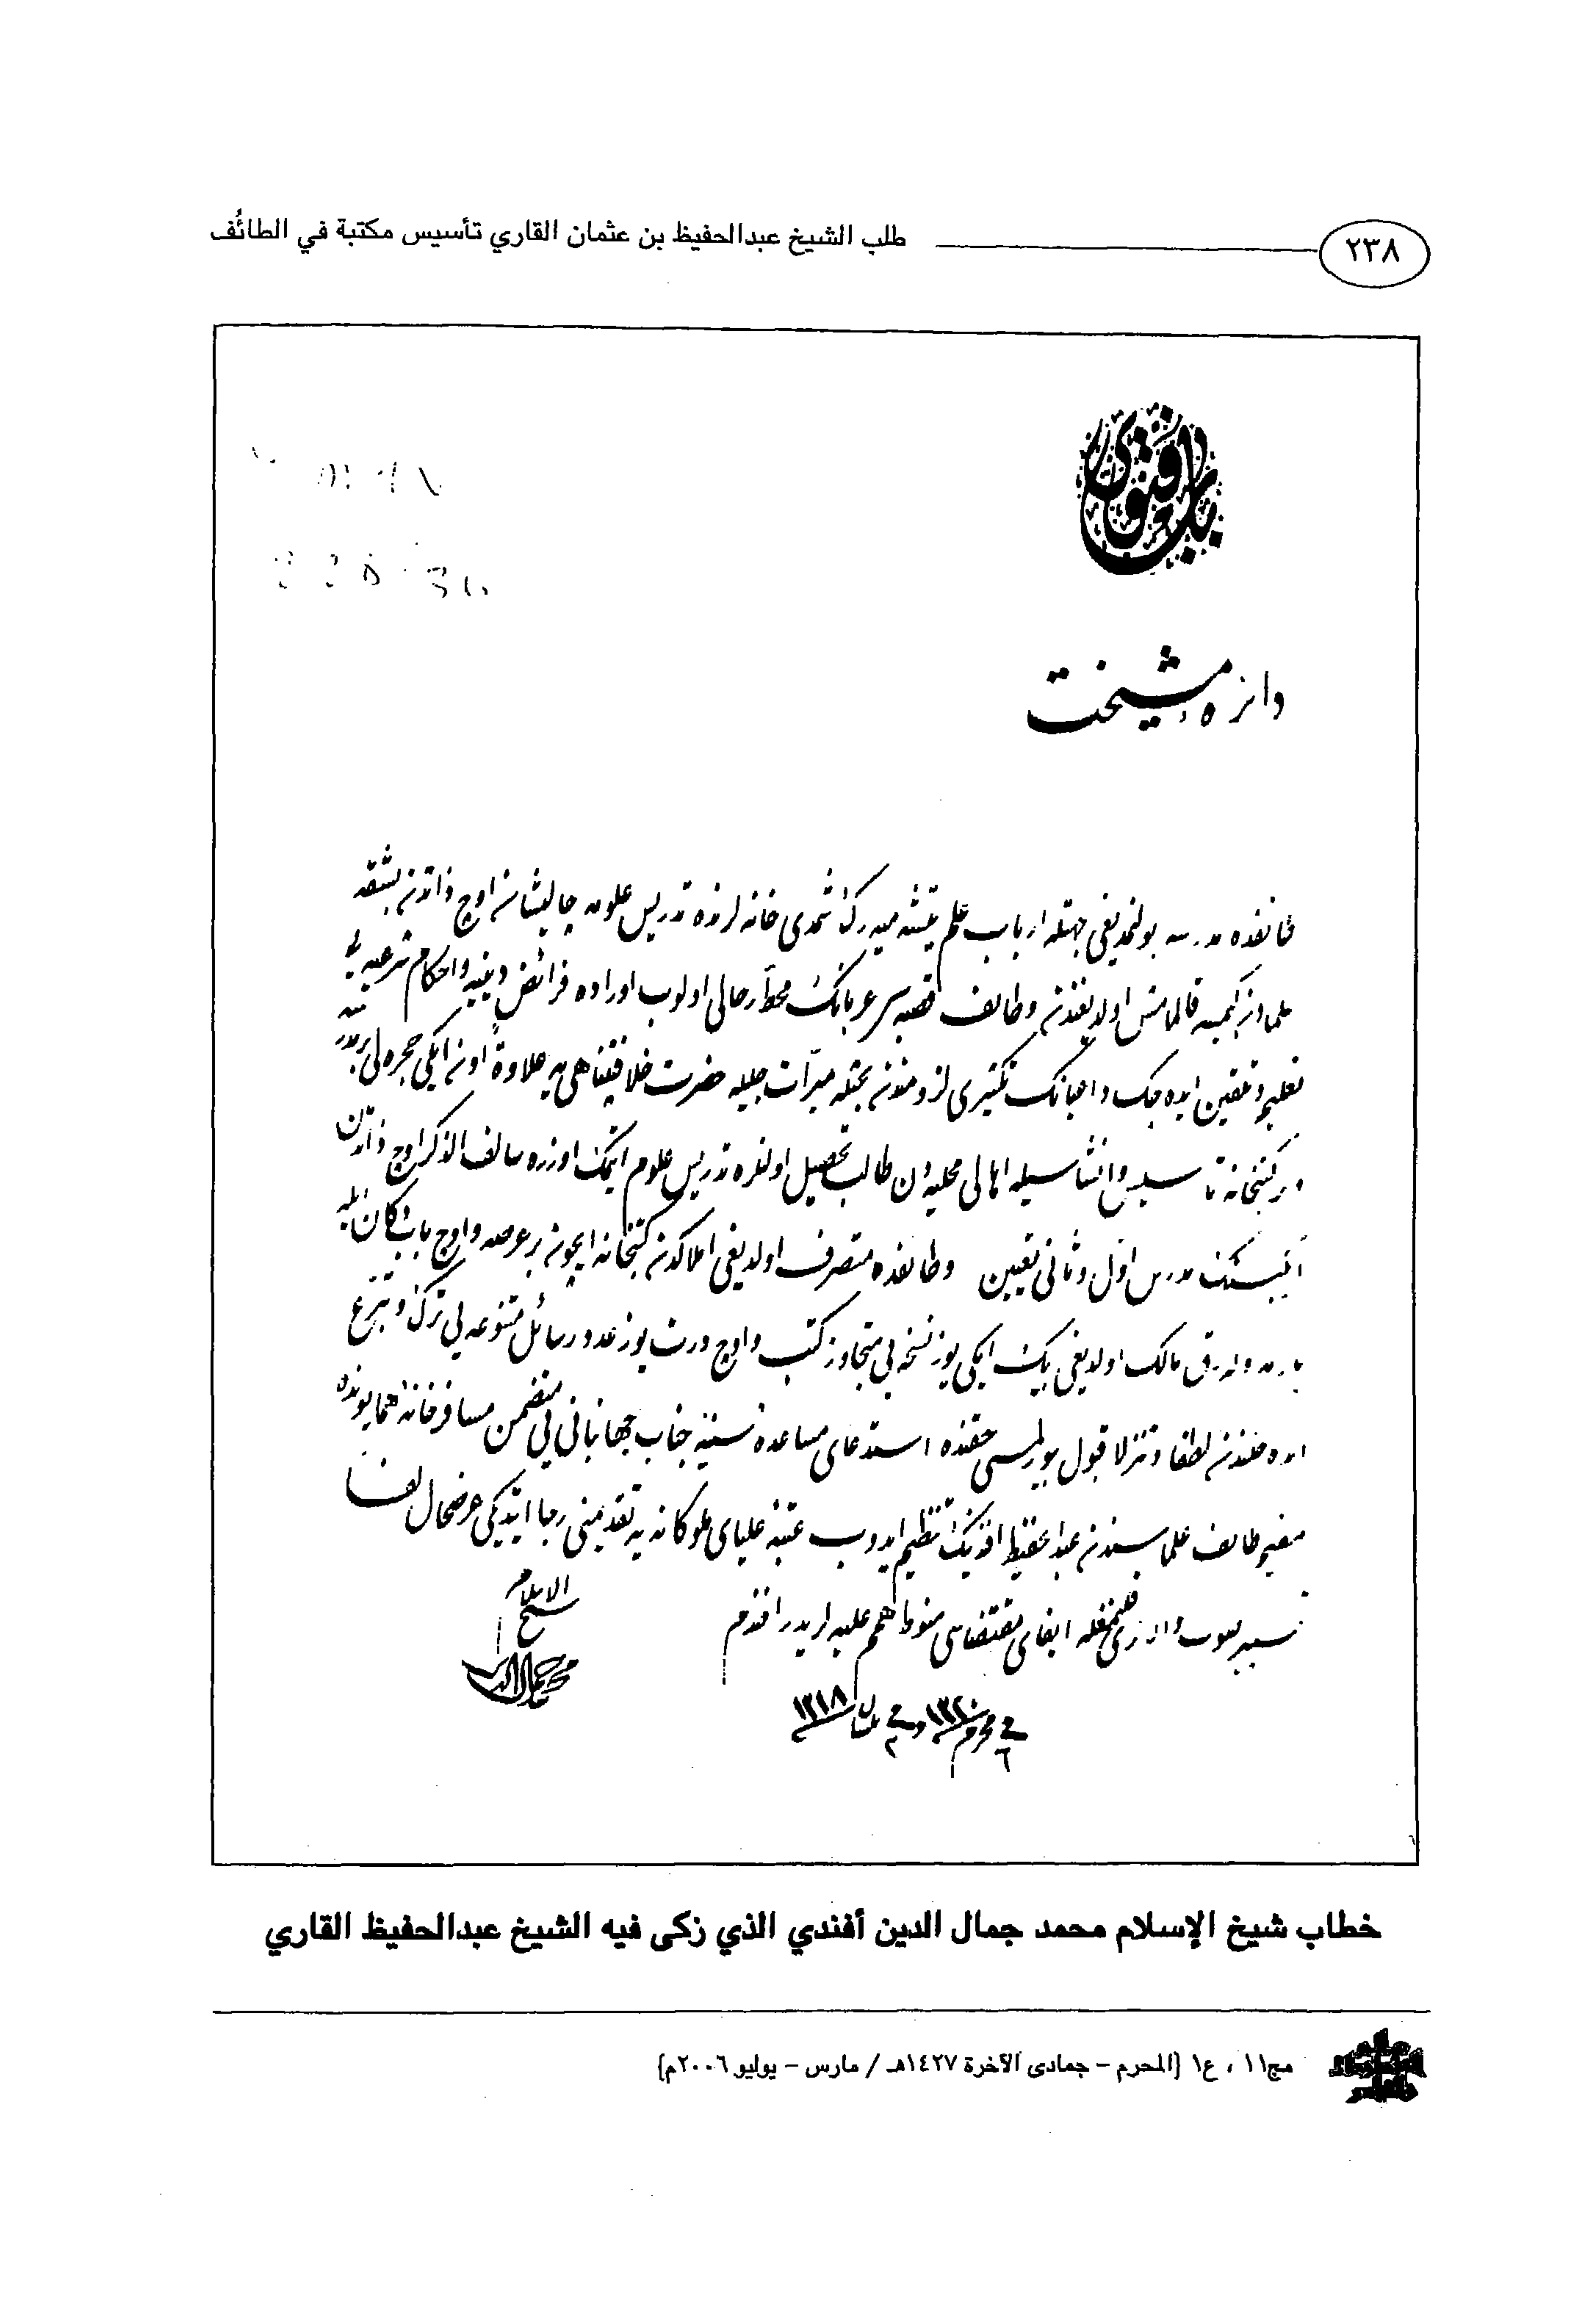 طلب الشيخ عبدالحفيظ بن عثمان القاري تأسيس مكتبة في الطائف
٢٣٨
باب فتوى
دائره مشيخت
طائفده مدرسه بولنمديغى جهتله ارباب علم يتيشه ميه رك شمدى خانه لرنده تدريس علومه چاليشان اوچ ذاتدن بشقه
علمادن كيمسه قالمامش اولديغندن وطائف قصبه سى عربانك محط رحالى اولوب اوراده فرائض دينيه واحكام شرعيه يى
تعليم وتلقين ايده جك تكثيرى لزومندن بحثله مبرات جليله حضرت خلافتپناهى يه علاوة اون ايكى حجره لى بر مدرسه
وبر كتبخانه تأسيس وانشاسيله اهالى محليه دن طالب تحصيل اولنلره تدريس علوم ايتمك اوزره سالف الذكر اوچ ذاتدن
ايكيسنك مدرس اول وثانى تعيين وطائفده متصرف اولديغى املاكدن كتبخانه ايچون بر عرصه واوچ باب دكان ايله
مالك اولديغى بيك ايكى يوز نسخه يى متجاوز كتب واوچ درت يوز عدد رسائل متنوعه يى ترك وتبرع
ايده جكندن لطفا وتنزلا قبول بيورلمسى حقنده استدعاى مساعده سنيه جناب جهانبانى يى متضمن مسافرخانه همايونده
مقيم طائف علماسندن عبدالحفيظ افندينك تنظيم ايدوب عتبه علياى ملوكانه يه تقديمنى رجا ايتديكى عرضحال لفا
تسيير قلنمغله ايفاى مقتضاسى منوط همم عليه لريدر افندم
في ٦ محرم ١٣٢٠ وفي ٢ نيسان ١٣١٨
شيخ الاسلام
محمد جمال الدين
خطاب شيخ الإسلام محمد جمال الدين أفندي الذي زكى فيه الشيخ عبدالحفيظ القاري
مج١١ ، ع١ (المحرم – جمادى الآخرة ١٤٢٧هـ / مارس – يوليو ٢٠٠٦م)